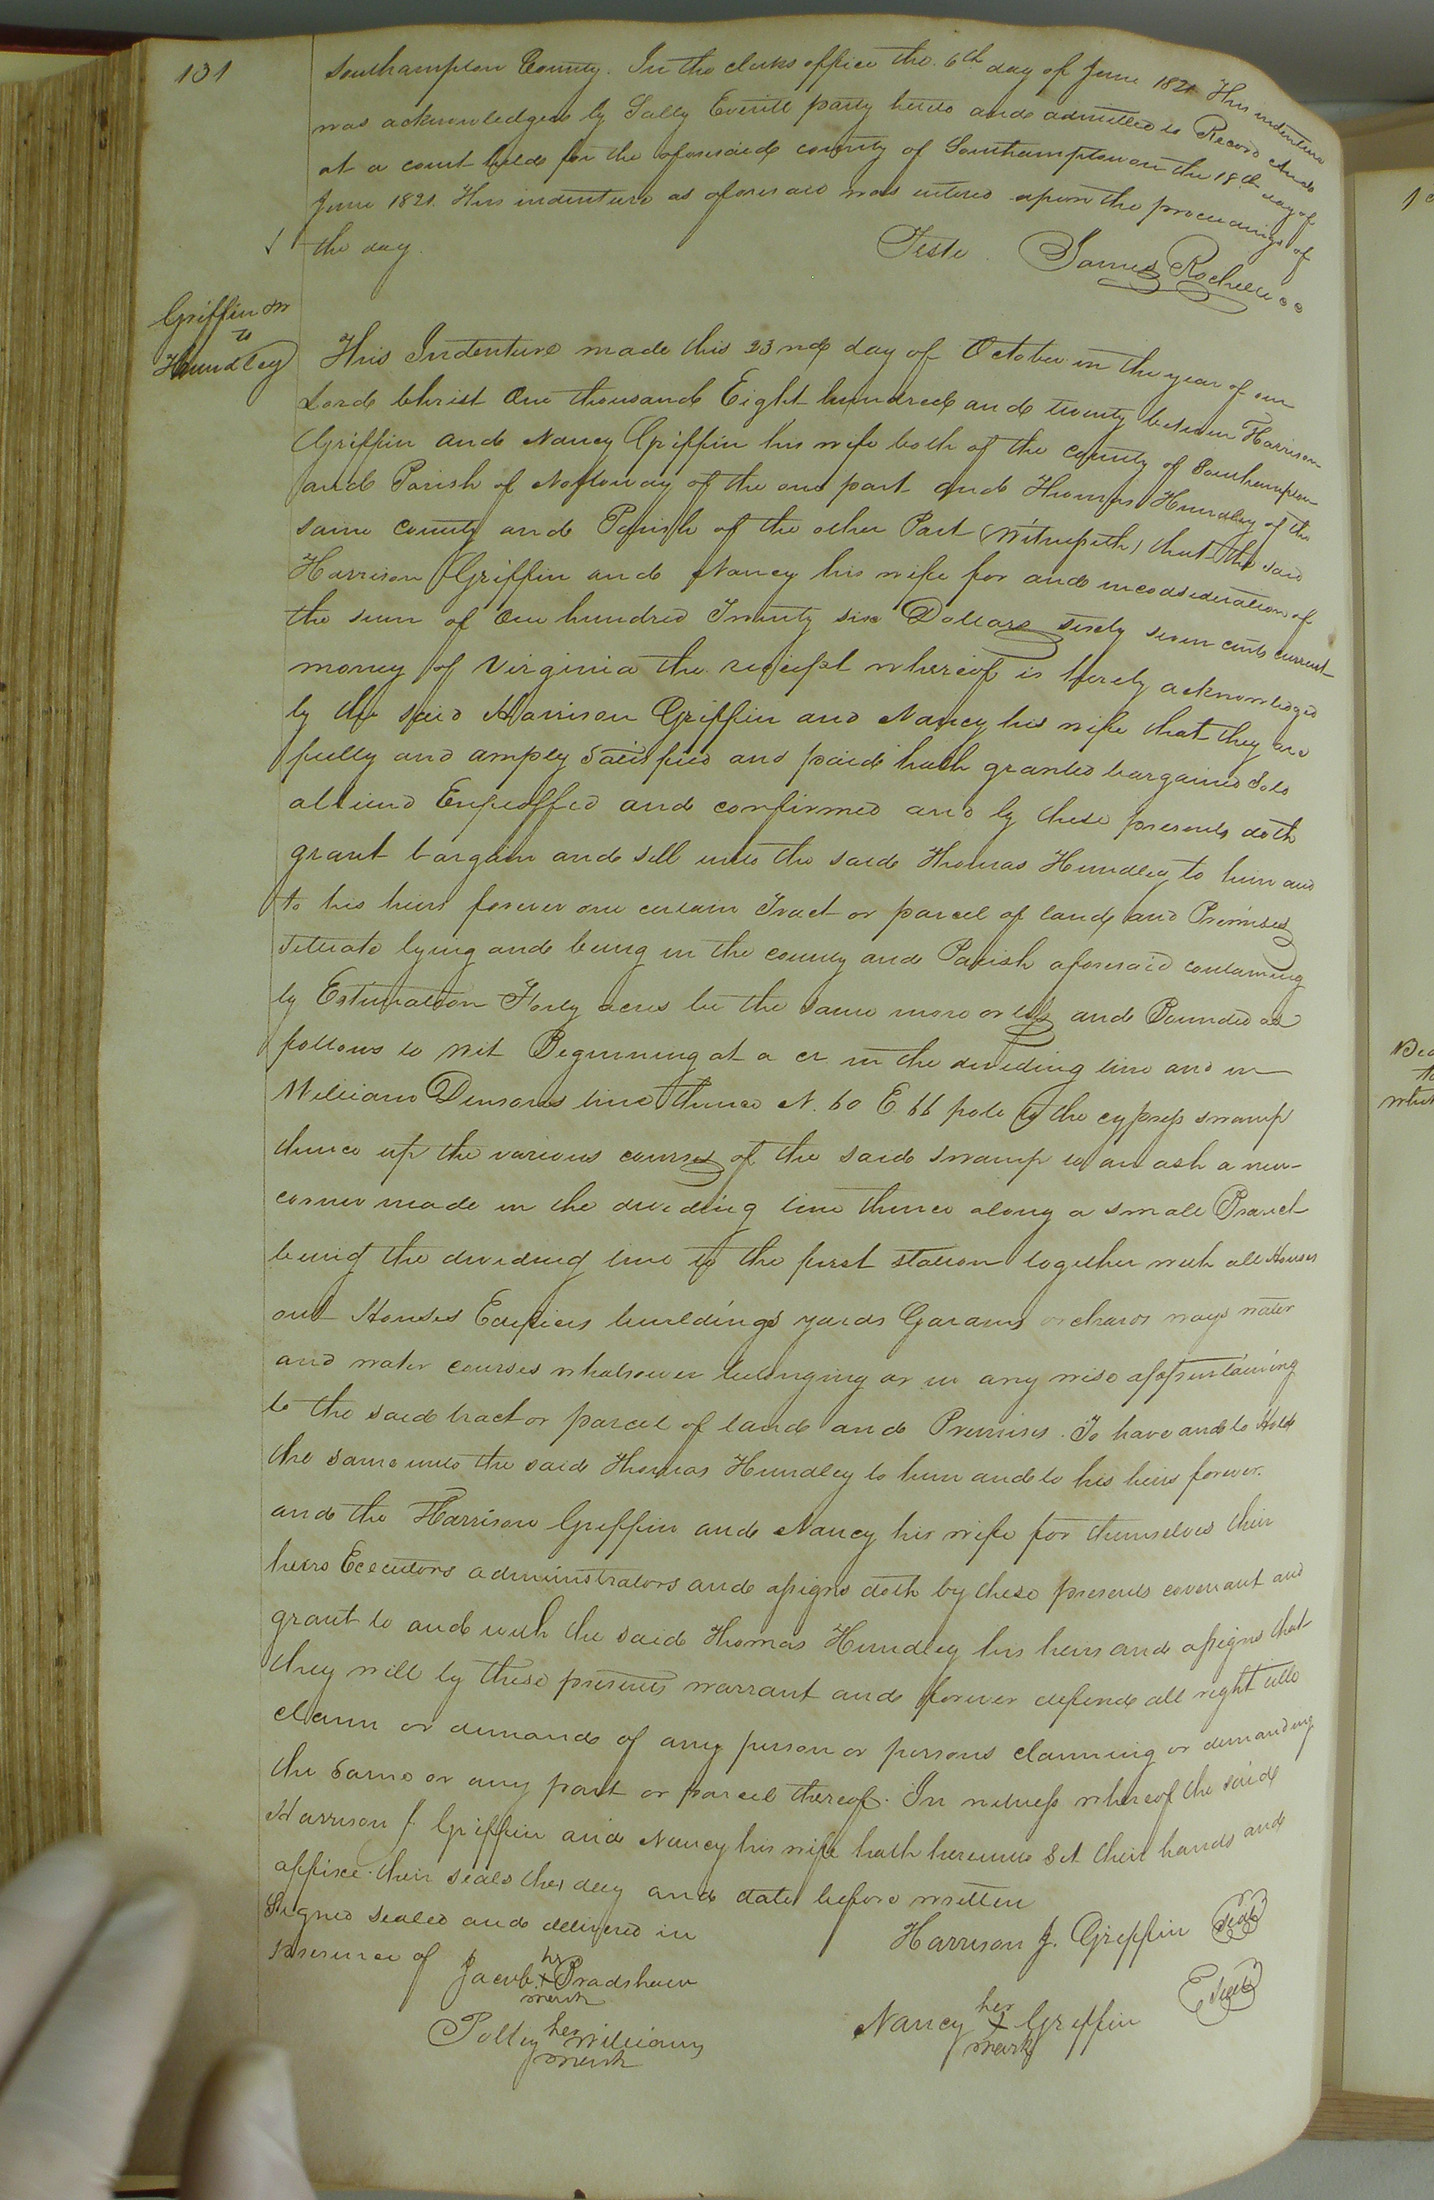 131
Southampton County. In the clerks office the 6th day of June 1821 This indenture
was acknowledged by Sally Everitt party hereto and admitted to Record And
at a court held for the aforesaid county of Southampton on the 18th day of
June 1821. This indenture as aforesaid was entered upon the proceedings of
the day.
Teste James Rochelle cc
Griffin &c
to
Hundley
This Indenture made this 23nd day of October in the year of our
Lord Christ One thousand Eight hundred and twenty between Harrison
Griffin and Nancy Griffin his wife both of the county of Southampton
and Parish of Nottoway of the one part and Thomas Hundley of the
same county and Parish of the other Part (Witnesseth) that the said
Harrison Griffin and Nancy his wife for and in consideration of
the sum of One hundred Twenty six Dollars sixty seven cents current
money of Virginia the receipt whereof is hereby acknowledged
by the said Harrison Griffin and Nancy his wife that they are
fully and amply satisfied and paid hath granted bargained Sold
aliend Enfeoffed and confirmed and by these presents doth
grant bargain and sell unto the said Thomas Hundley to him and
to his heirs forever one certain Tract or parcel of land and Premises
Situate lying and being in the county and Parish aforesaid containing
by Estimation Forty acres be the same more or less and Bounded as
follows to Wit Beginning at a in the dividing line and in
William Densons line thence N. 60 E 66 pole to the cypress swamp
thence up the various courses of the said swamp to an ash a new
corner made in the dividing line thence along a small Branch
being the dividing line to the first station together with all Houses
out Houses Edifices buildings yards Gardens orchards ways water
and water courses whatsoever belonging or in any wise appertaining
to the said tract or parcel of land and Premises. To have and to Hold
the same unto the said Thomas Hundley to him and to his heirs forever.
and the Harrison Griffin and Nancy his wife for themselves their
heirs Executors administrators and assigns doth by these presents covenant and
grant to and with the said Thomas Hundley his heirs and assigns that
they will by these presents warrant and forever defend all right title
claim or demand of any person or persons claiming or demanding
the same or any part or parcel thereof. In witness whereof the said
Harrison J. Griffin and Nancy his wife hath hereunto Set their hands and
affixe their seals the day and date before written
Signed sealed and delivered in
presence of
Harrison J. Griffin Seal
Jacob his + mark Bradshaw
Nancy her + mark Griffin Seal
Polley her mark Williams